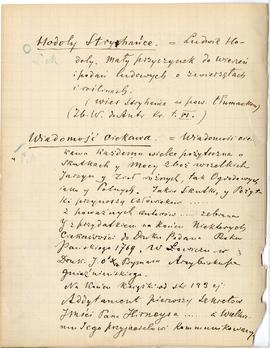 Hodoly Stryhańce. = Ludwik Ho-
doly. Mały przyczynek do wierzeń
i podań ludowych o zwierzętach
i roślinach.
(wieś Stryhańce w pow. Tłumackim)
(Zb. W. do Antr. kr. t. VI.)
Wiadomość Ciekawa. = Wiadomość cie-
kawa każdemu wielce pożyteczna o
Skutkach y Mocy Zboż wszelkich
Jarzyn y Zioł rożnych, tak Ogrodowych
iako y Polnych. Jakie Skutki, y Pożyt-
ki przynoszą człowiekowi ....
z poważnych Autorow .... zebrana
z przydatkiem na końcu Niektorych
Ciekawości do Druku Podana Roku
Pańskiego 1769. w Łowiczu w
Druk. J. O. Xa Prymasa Arcybiskupa
gnieźnieńskiego.
Na końcu Książki od str. 193 ej
Addytament pierwszy Sekretow
Jmści Pana Hirneysa ... z Wielkiey
Jego przyjaźności kommunikowany